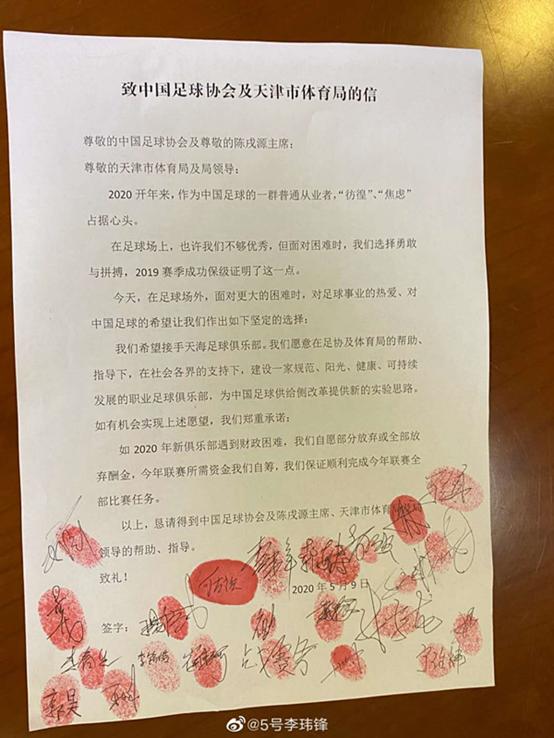 致中国足球协会及天津市体育局的信
尊敬的中国足球协会及尊敬的陈戌源主席：
尊敬的天津市体育局及局领导：
2020 开年来，作为中国足球的一群普通从业者，“彷徨”、“焦虑”
占据心头。
在足球场上，也许我们不够优秀，但面对困难时，我们选择勇敢
与拼搏，2019 赛季成功保级证明了这一点。
今天，在足球场外，面对更大的困难时，对足球事业的热爱、对
中国足球的希望让我们作出如下坚定的选择：
我们希望接手天海足球俱乐部。我们愿意在足协及体育局的帮助、
指导下，在社会各界的支持下，建设一家规范、阳光、健康、可持续
发展的职业足球俱乐部，为中国足球供给侧改革提供新的实验思路。
如有机会实现上述愿望，我们郑重承诺：
如 2020 年新俱乐部遇到财政困难，我们自愿部分放弃或全部放
弃酬金，今年联赛所需资金我们自筹，我们保证顺利完成今年联赛全
部比赛任务。
以上，恳请得到中国足球协会及陈戌源主席、天津市体育
领导的帮助、指导。
致礼！
2020 年 5 月 9 日
签字：
郭昊
@5号李玮锋